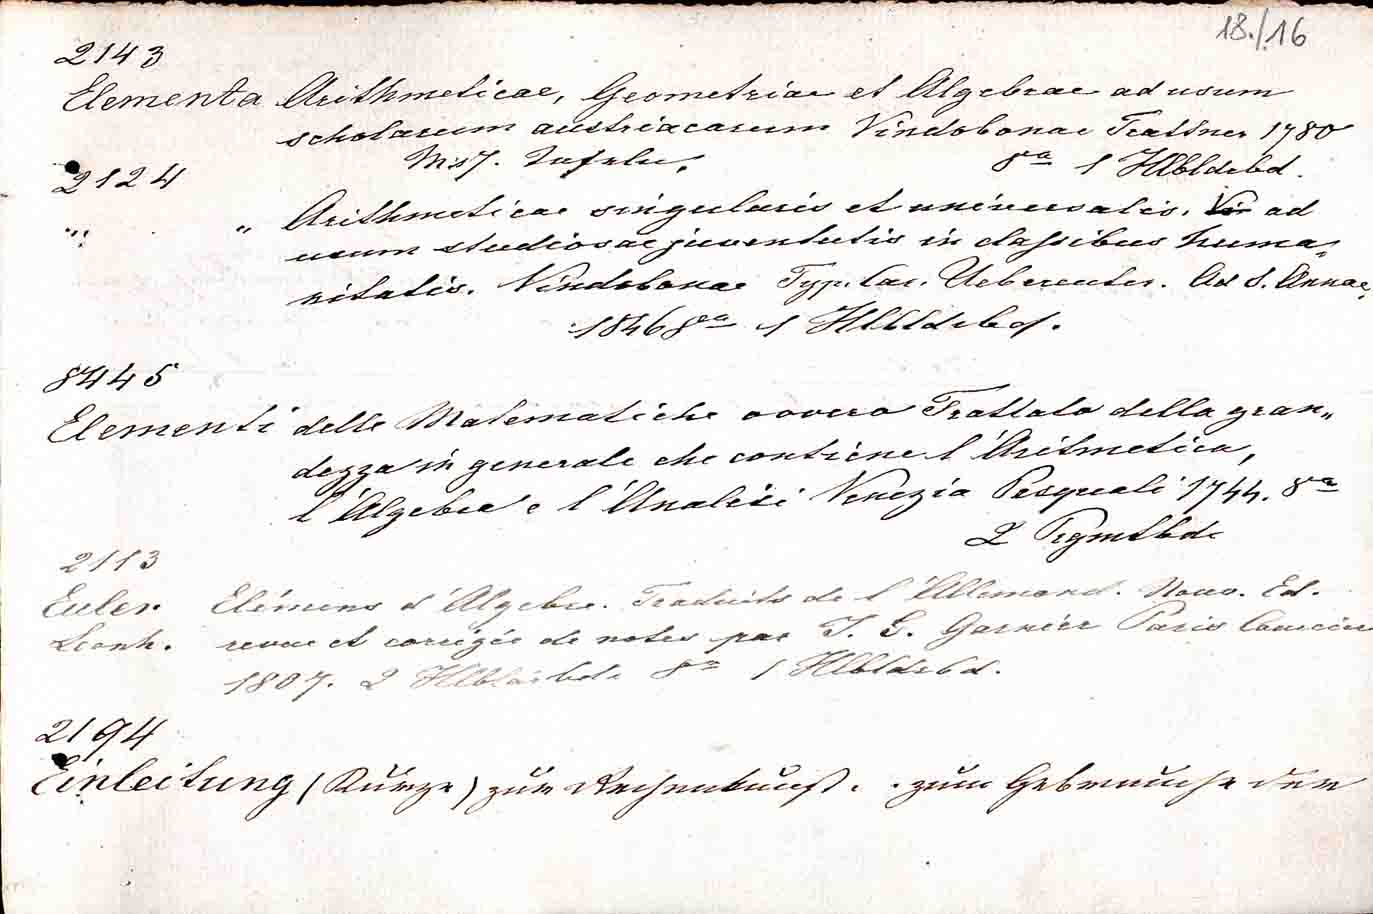 18./.16
2143
Elementa Arithmeticae, Geometriae et Algebrae ad usum
scholarum austriacarum Vindobonae Trattner 1780
Mit 7. Tafeln. 8º 1 Hlbldrbd.
2124
" " Arithmeticae singularis et universalis. ad
usum studiosae juventutis in classibus huma„
nitatis. Vindobonae Typ. Car. Ueberreuter. Ad S. Annae,
1846 8º 1 Hlbldrbd.
8445
Elementi delle Matematiche ovvero Trattato della gran„
dezza in generale che contiene l'Aritmetica,
l'Algebra e l'Analisi Venezia Pasquali 1744. 8º
2 Prgmtbde
2113
Euler Elémens d'Algebre. Traduits de l'Allemand. Nouv. Ed.
Leonh. revue et corrigée de notes par J. G. Garnier Paris Courcier
1807. 2 8º 1 Hlbldrbd.
2194
Einleitung (Kurze) zur Rechenkunst. . zum Gebrauche der